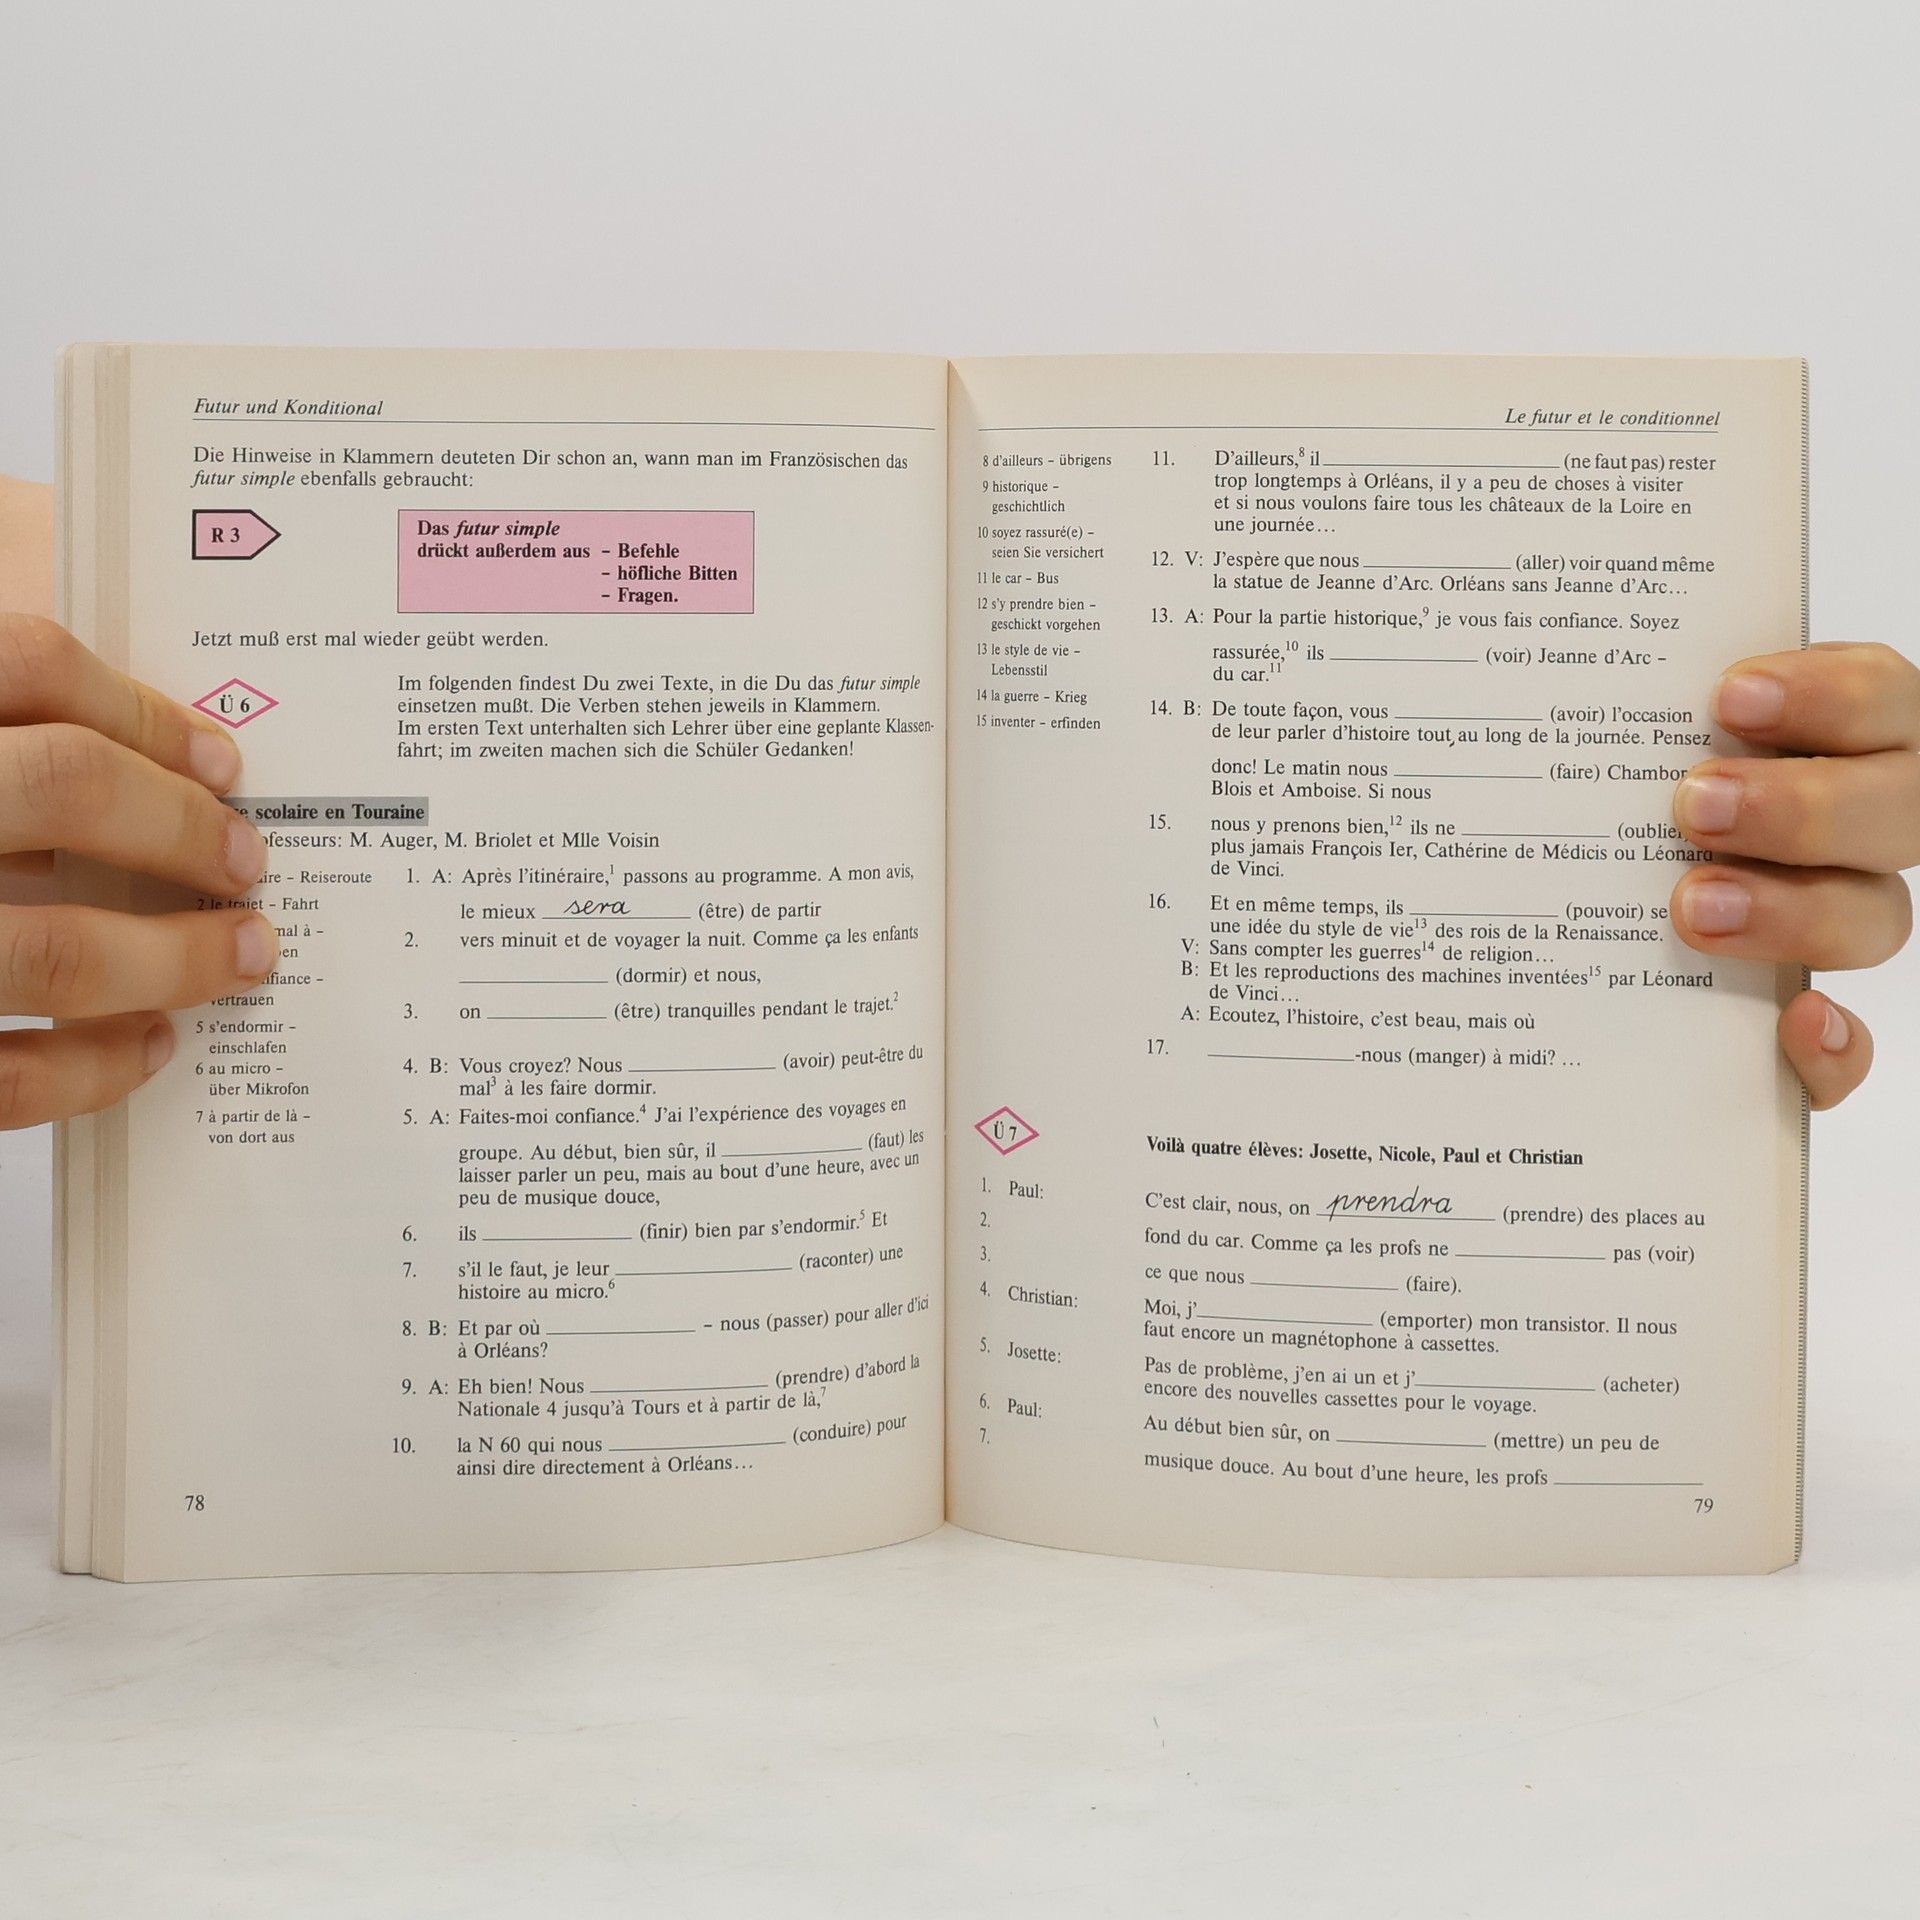 Futur und Konditional
Die Hinweise in Klammern deuteten Dir schon an, wann man im Französischen das
futur simple ebenfalls gebraucht:
R 3
Das futur simple
drückt außerdem aus – Befehle
– höfliche Bitten
– Fragen.
Jetzt muß erst mal wieder geübt werden.
Ü 6
Im folgenden findest Du zwei Texte, in die Du das futur simple
einsetzen mußt. Die Verben stehen jeweils in Klammern.
Im ersten Text unterhalten sich Lehrer über eine geplante Klassen-
fahrt; im zweiten machen sich die Schüler Gedanken!
scolaire en Touraine
M. Auger, M. Briolet et Mlle Voisin
– Reiseroute
2 le trajet – Fahrt
à –
vertrauen
5 s'endormir –
einschlafen
6 au micro –
über Mikrofon
7 à partir de là –
von dort aus
1. A: Après l'itinéraire,1 passons au programme. A mon avis,
le mieux sera (être) de partir
2. vers minuit et de voyager la nuit. Comme ça les enfants
(dormir) et nous,
3. on (être) tranquilles pendant le trajet.2
4. B: Vous croyez? Nous (avoir) peut-être du
mal3 à les faire dormir.
5. A: Faites-moi confiance.4 J'ai l'expérience des voyages en
groupe. Au début, bien sûr, il (faut) les
laisser parler un peu, mais au bout d'une heure, avec un
peu de musique douce,
6. ils (finir) bien par s'endormir.5 Et
7. s'il le faut, je leur (raconter) une
histoire au micro.6
8. B: Et par où – nous (passer) pour aller d'ici
à Orléans?
9. A: Eh bien! Nous (prendre) d'abord la
Nationale 4 jusqu'à Tours et à partir de là,7
10. la N 60 qui nous (conduire) pour
ainsi dire directement à Orléans...
78
Le futur et le conditionnel
8 d'ailleurs – übrigens
9 historique –
geschichtlich
10 soyez rassuré(e) –
seien Sie versichert
11 le car – Bus
12 s'y prendre bien –
geschickt vorgehen
13 le style de vie –
Lebensstil
14 la guerre – Krieg
15 inventer – erfinden
11. D'ailleurs,8 il (ne faut pas) rester
trop longtemps à Orléans, il y a peu de choses à visiter
et si nous voulons faire tous les châteaux de la Loire en
une journée...
12. V: J'espère que nous (aller) voir quand même
la statue de Jeanne d'Arc. Orléans sans Jeanne d'Arc...
13. A: Pour la partie historique,9 je vous fais confiance. Soyez
rassurée,10 ils (voir) Jeanne d'Arc –
du car.11
14. B: De toute façon, vous (avoir) l'occasion
de leur parler d'histoire tout au long de la journée. Pensez
donc! Le matin nous (faire)
Blois et Amboise. Si nous
15. nous y prenons bien,12 ils ne
plus jamais François Ier, Cathérine de Médicis ou Léonard
de Vinci.
16. Et en même temps, ils (pouvoir) se
une idée du style de vie13 des rois de la Renaissance.
V: Sans compter les guerres14 de religion...
B: Et les reproductions des machines inventées15 par Léonard
de Vinci...
A: Ecoutez, l'histoire, c'est beau, mais où
17. -nous (manger) à midi? ...
Ü 7
Voilà quatre élèves: Josette, Nicole, Paul et Christian
1. Paul: C'est clair, nous, on prendra (prendre) des places au
2. fond du car. Comme ça les profs ne pas (voir)
3. ce que nous (faire).
4. Christian: Moi, j' (emporter) mon transistor. Il nous
faut encore un magnétophone à cassettes.
5. Josette: Pas de problème, j'en ai un et j' (acheter)
encore des nouvelles cassettes pour le voyage.
6. Paul: Au début bien sûr, on (mettre) un peu de
7. musique douce. Au bout d'une heure, les profs
79